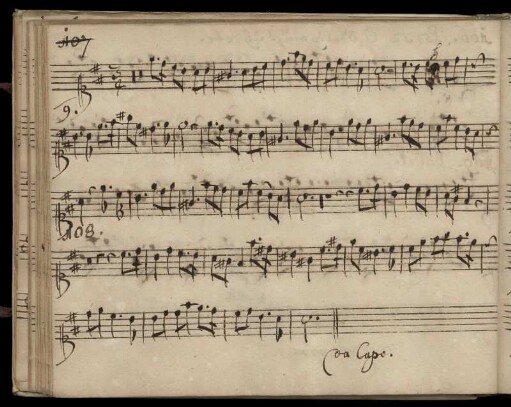 107
9.
108.
Da Capo.